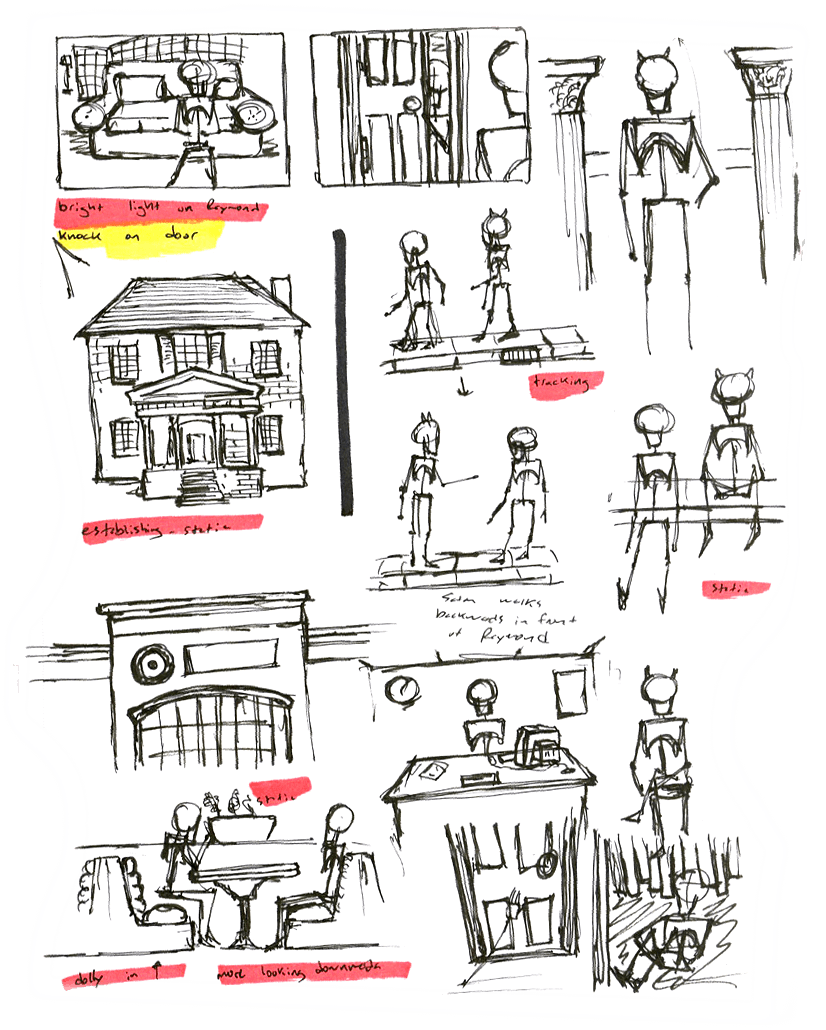 bright light on Raymond
knock on door
tracking
establishing - static
static
Satan walks
backwards in front
of Raymond
static
dolly in
more looking downwards